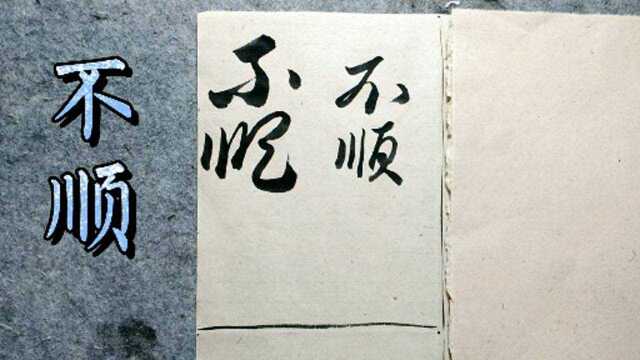 不顺
不顺
不顺